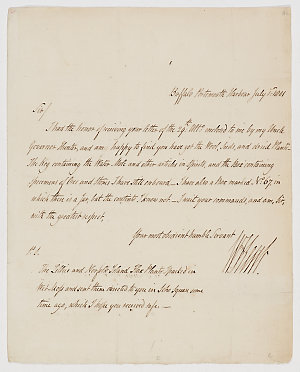 Buffalo Portsmouth Harbour July 1st 1801
Sir/
I had the honor of receiving your letter of the 29th Ult. inclosed to me by my Uncle
Governor Hunter, and am happy to find you have got the Wool, Seeds, and dried Plants.
The Keg containing the Water Mole and other articles in Spirits, and the Box containing
Specimens of Ores and Stones I have still onboard. I have also a Box marked No. 67 in
which there is a Jar, but the contents I know not. I wait your commands, and am, Sir,
with the greatest respect.
Your most obedient humble Servant
P.S.
The Letter and Norfolk Island Flax Plants I packed in
Wet and sent them directed to you in Soho Square some
time ago, which I hope you received safe.